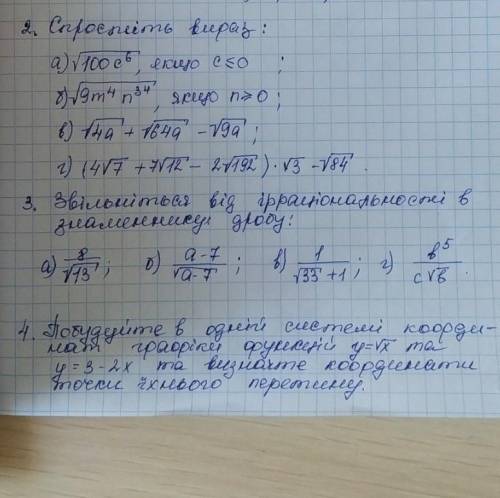 2. Спростіть вираз:
а) √100c⁶, якщо c≤0 ;
б) √9m⁴n³⁴, якщо n≥0 ;
в) √4a + √64a - √9a ;
г) (4√7 + 7√12 - 2√192)·√3 - √84 .
3. Звільніться від ірраціональності в
знаменнику дробу:
а) 8/√13 ; б) a-7/√a-7 ; в) 1/√33+1 ; г) b⁵/c√b .
4. Побудуйте в одній системі коорди-
нат графіки функцій y=√x та
y=3-2x та визначте координати
точки їхнього перетину.